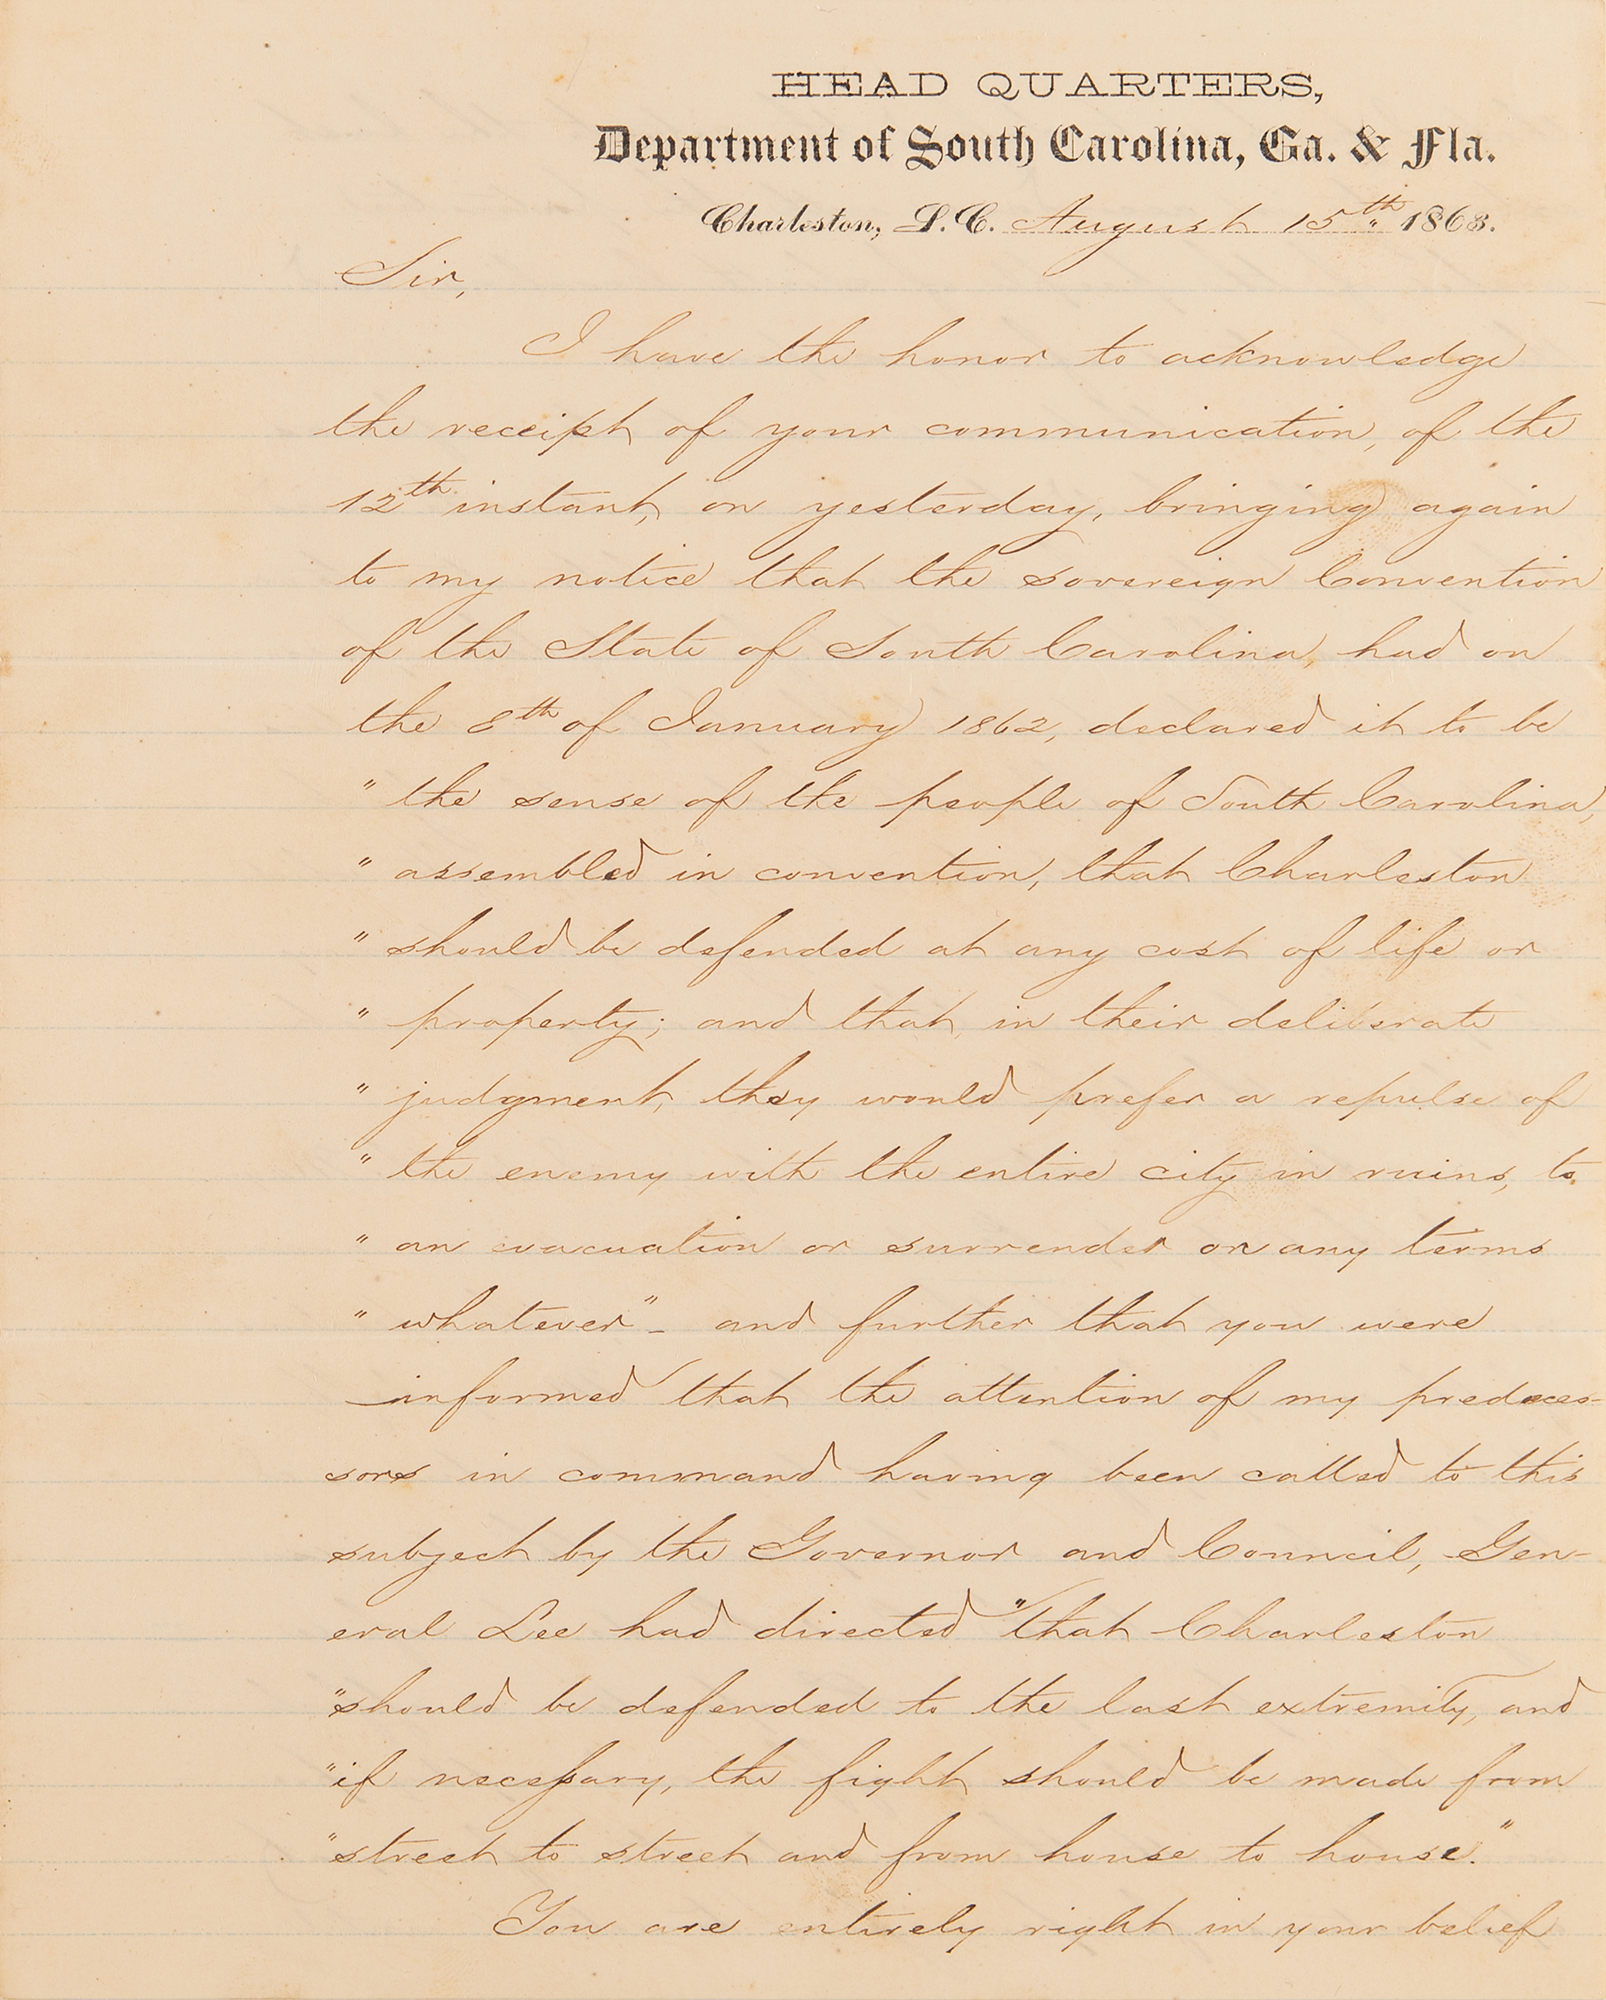 HEAD QUARTERS,
Department of South Carolina, Ga. & Fla.
Charleston, S. C. August 15th 1863.
Sir,
I have the honor to acknowledge
the receipt of your communication, of the
12th instant, on yesterday, bringing again
to my notice that the sovereign Convention
of the State of South Carolina, had on
the 8th of January 1862, declared it to be
" the sense of the people of South Carolina,
" assembled in convention, that Charleston
" should be defended at any cost of life or
" property; and that, in their deliberate
" judgment, they would prefer a repulse of
" the enemy with the entire city in ruins, to
" an evacuation or surrender on any terms
" whatever" - and further that you were
informed that the attention of my predeces-
sors in command having been called to this
subject by the Governor and Council, Gen-
eral Lee had directed "that Charleston
"should be defended to the last extremity, and
"if necessary, the fight should be made from
"street to street and from house to house."
You are entirely right in your belief